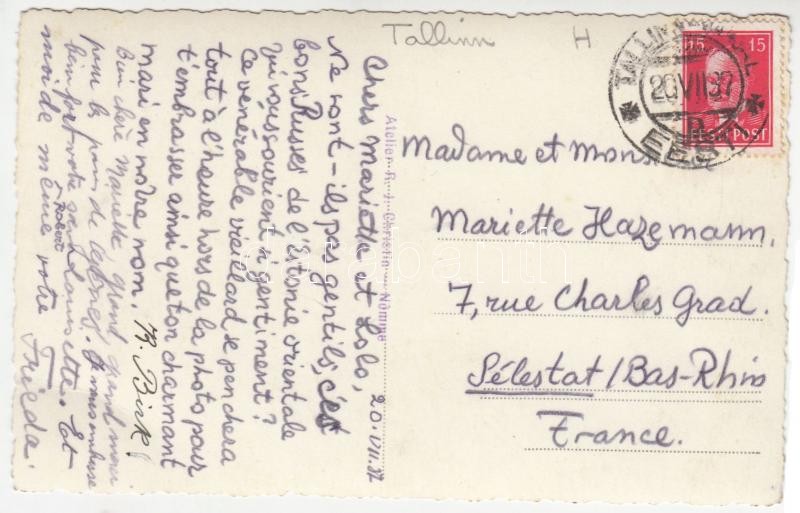 Tallinn
H
TALLINN
20 VII 37
EESTI
15 15
EESTI POST
Chers Mariette et Lolo, 20.VII.37
Ne sont-ils pas gentils, ces
bons Russes de l'Estonie orientale
qui vous sourient si gentiment?
Ce vénérable vieillard se penchera
tout à l'heure hors de la photo pour
t'embrasser ainsi que ton charmant
mari en notre nom. B. Bick
Bien chère Mariette grand grand merci
pour les de Je vous embrasse
bien fort votre Et
Robert
moi de même votre Frieda.
Atelier R. J. Christin — Nõmme
Madame et Mons.
Mariette Hazemann,
7, rue Charles Grad.
Sélestat / Bas-Rhin
France.
darabanth